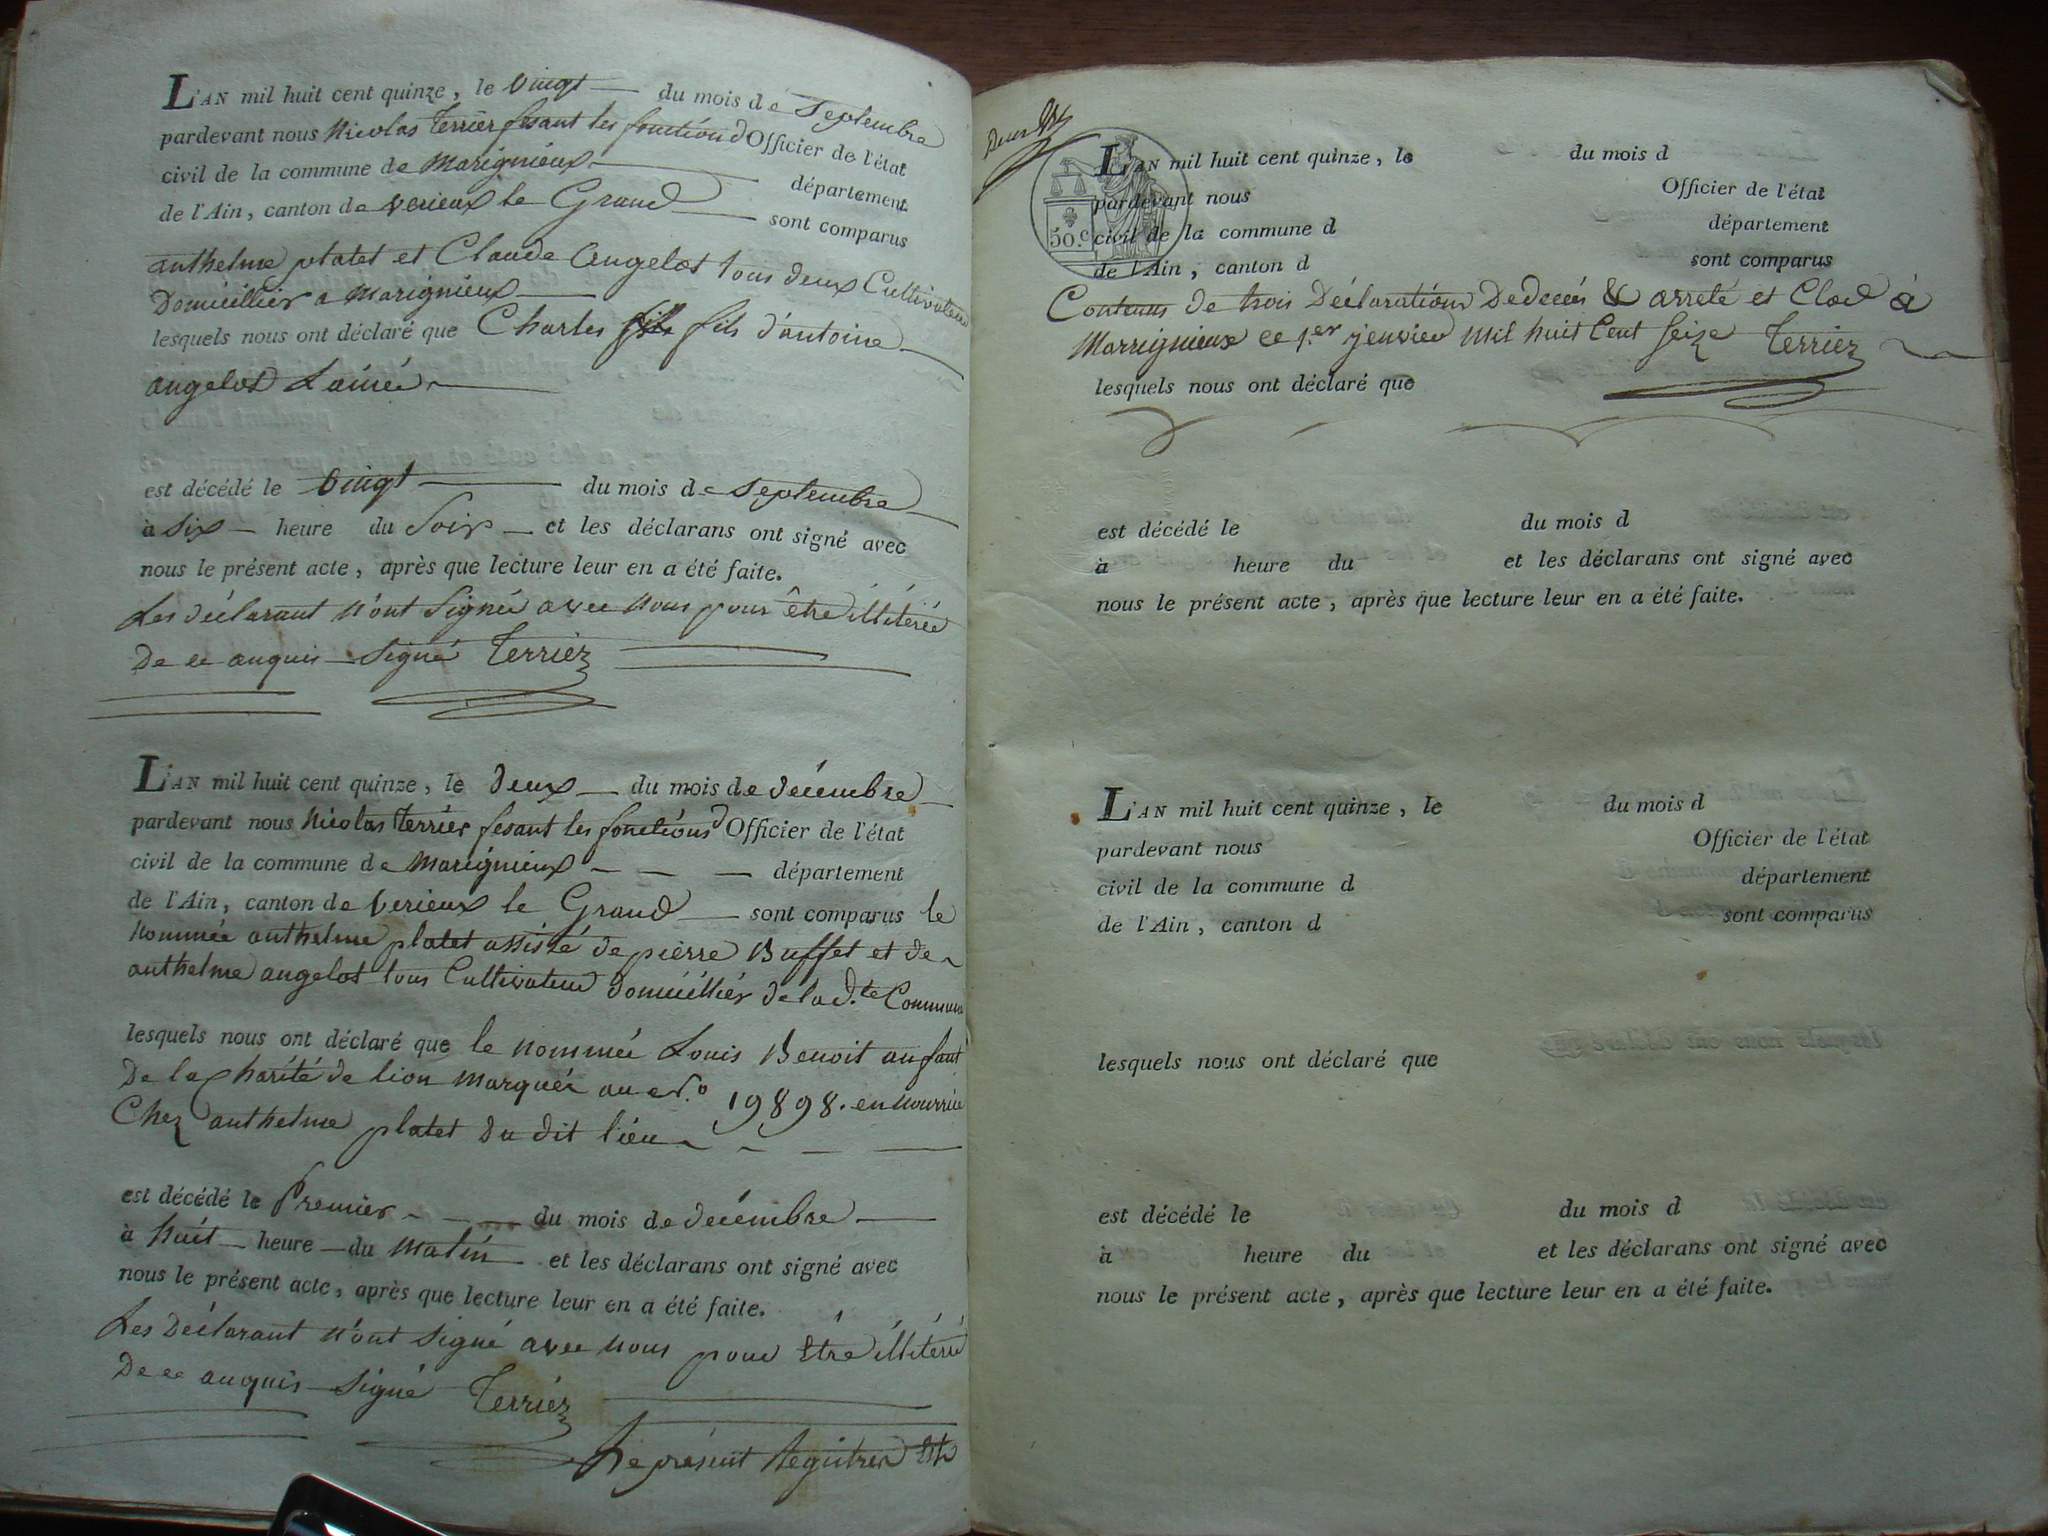 L'AN mil huit cent quinze, le vingt du mois de Septembre
pardevant nous Nicolas Terrier fesant les fonction d Officier de l'état
civil de la commune de Marignieux département
de l'Ain, canton de verieux le Grand sont comparus
anthelme platet et Claude Angelot tous deux Cultivateur
Domicillier a Marignieux
lesquels nous ont déclaré que Charles fils d'antoine
angelot Lainée
est décédé le vingt du mois de Septembre
à Six heure du Soir et les déclarans ont signé avec
nous le présent acte, après que lecture leur en a été faite.
Les déclarant n'ont Signée avec nous pour être illitérée
De ce anquis Signé Terrier
L'AN mil huit cent quinze, le deux du mois de décembre
pardevant nous Nicolas Terrier fesant les fonctions d Officier de l'état
civil de la commune de Marignieux département
de l'Ain, canton de verieux le Grand sont comparus le
nommée anthelme platet assisté de pierre Buffet et de
anthelme angelot tous Cultivateur domicillier de la d.te Commune
lesquels nous ont déclaré que le nommée Louis Benoit anfant
De la Charité de lion Marquée au N.o 19898. en nourrice
Chez anthelme platet Du dit lieu
est décédé le Premier du mois de décembre
à huit heure du Matin et les déclarans ont signé avec
nous le présent acte, après que lecture leur en a été faite.
Les Déclarant n'ont Signé avec nous pour être illitérée
De ce anquis Signé Terrier
Le présent Registre
L'AN mil huit cent quinze, le du mois d
pardevant nous Officier de l'état
50.c civil de la commune d département
de l'Ain, canton d sont comparus
Contenus de trois Déclarations Dedecés & arreté et Clos à
Marrignieux ce 1.er jenvier mil huit Cent Seize Terrier
lesquels nous ont déclaré que
est décédé le du mois d
à heure du et les déclarans ont signé avec
nous le présent acte, après que lecture leur en a été faite.
L'AN mil huit cent quinze, le du mois d
pardevant nous Officier de l'état
civil de la commune d département
de l'Ain, canton d sont comparus
lesquels nous ont déclaré que
est décédé le du mois d
à heure du et les déclarans ont signé avec
nous le présent acte, après que lecture leur en a été faite.